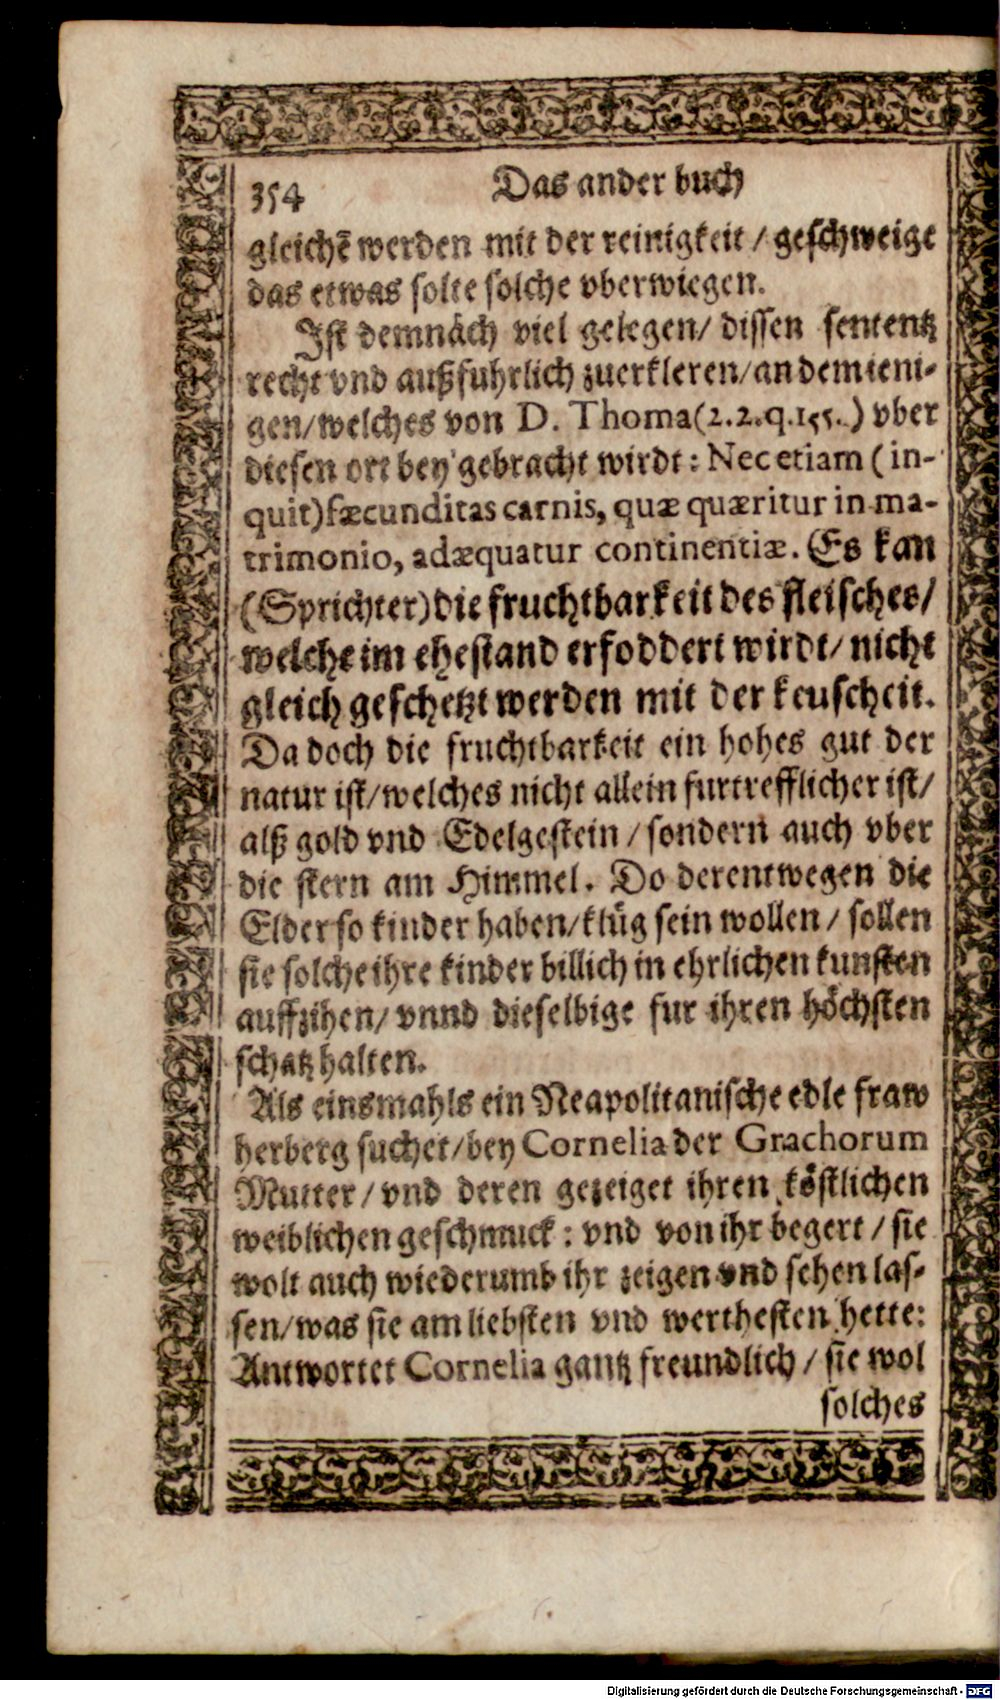 354 Das ander buch
gleichē werden mit der reinigkeit / geschweige
das etwas solte solche vberwiegen.
Ist demnäch viel gelegen/ dissen sententz
recht vnd außfuhrlich zuerkleren/an demieni-
gen/welches von D. Thoma(2.2.q.155.) vber
diesen ort bey gebracht wirdt: Nec etiam (in-
quit)fæcunditas carnis, quæ quæritur in ma-
trimonio, adæquatur continentiæ. Es kan
(Sprichter)die fruchtbarkeit des fleisches/
welche im ehestand erfoddert wirdt/ nicht
gleich geschetzt werden mit der keuscheit.
Da doch die fruchtbarkeit ein hohes gut der
natur ist/welches nicht allein furtrefflicher ist/
alß gold vnd Edelgestein / sondern auch vber
die stern am Himmel. Do derentwegen die
Elder so kinder haben/klüg sein wollen / sollen
sie solche ihre kinder billich in ehrlichen kunsten
auffzihen/ vnnd dieselbige fur ihren höchsten
schatz halten.
Als einsmahls ein Neapolitanische edle fraw
herberg suchet/bey Cornelia der Grachorum
Mutter / vnd deren gezeiget ihren köstlichen
weiblichen geschmuck : vnd von ihr begert / sie
wolt auch wiederumb ihr zeigen vnd sehen las-
sen/was sie am liebsten vnd werthesten hette:
Antwortet Cornelia gantz freundlich / sie wol
solches
Digitalisierung gefördert durch die Deutsche Forschungsgemeinschaft - DFG